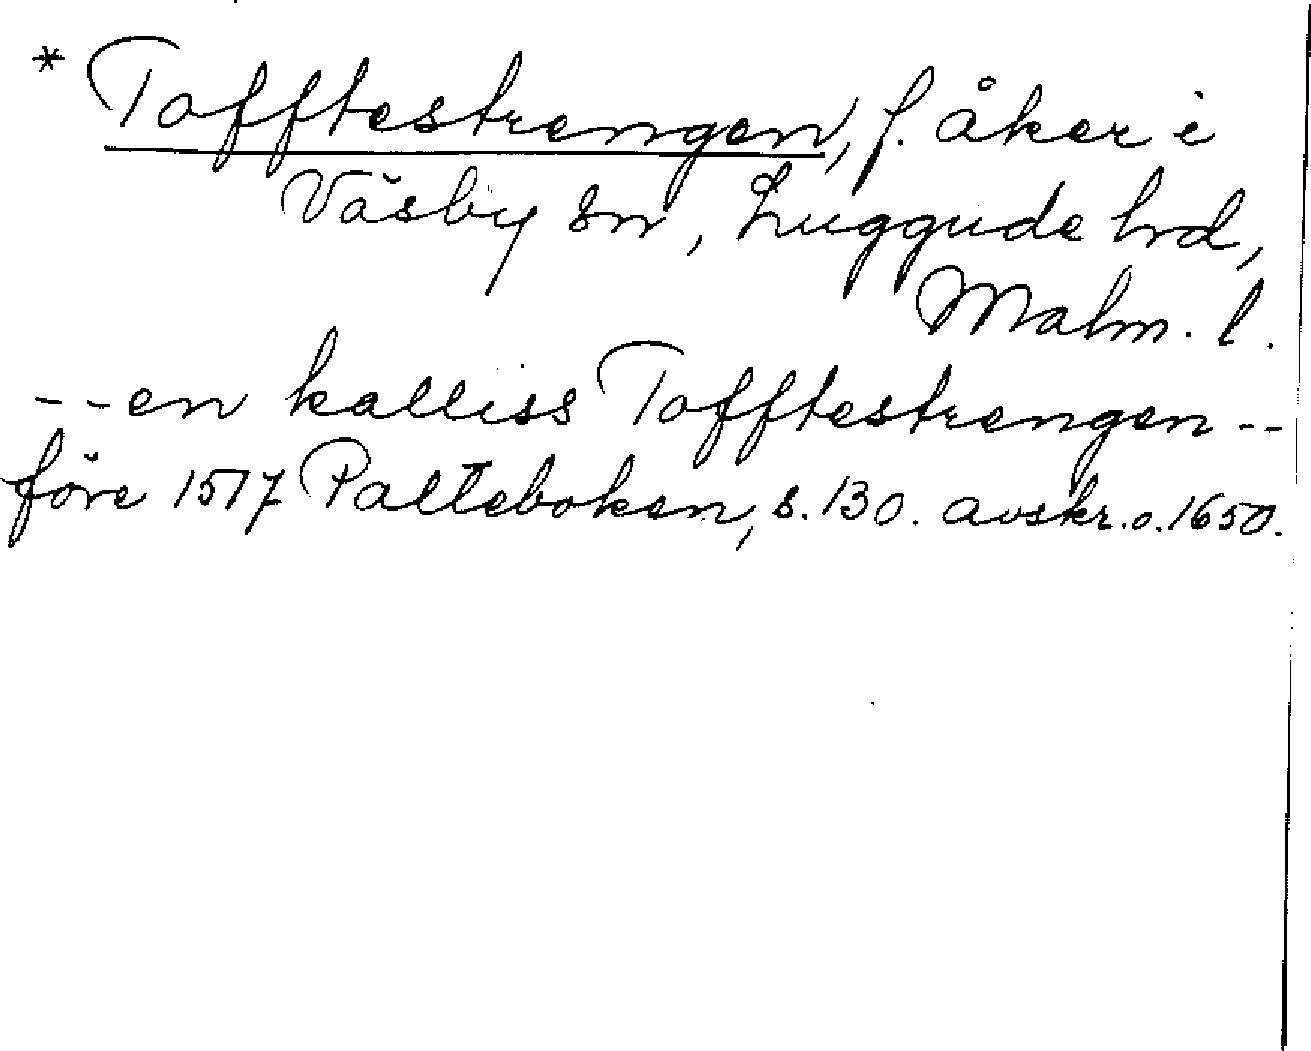 * Tofftestrengen, f. åker i
Väsby sn, Luggude hrd,
Malm. l.
--en kalliss Tofftestrengen--
före 1517 Palteboken, s. 130. avskr. o. 1650.